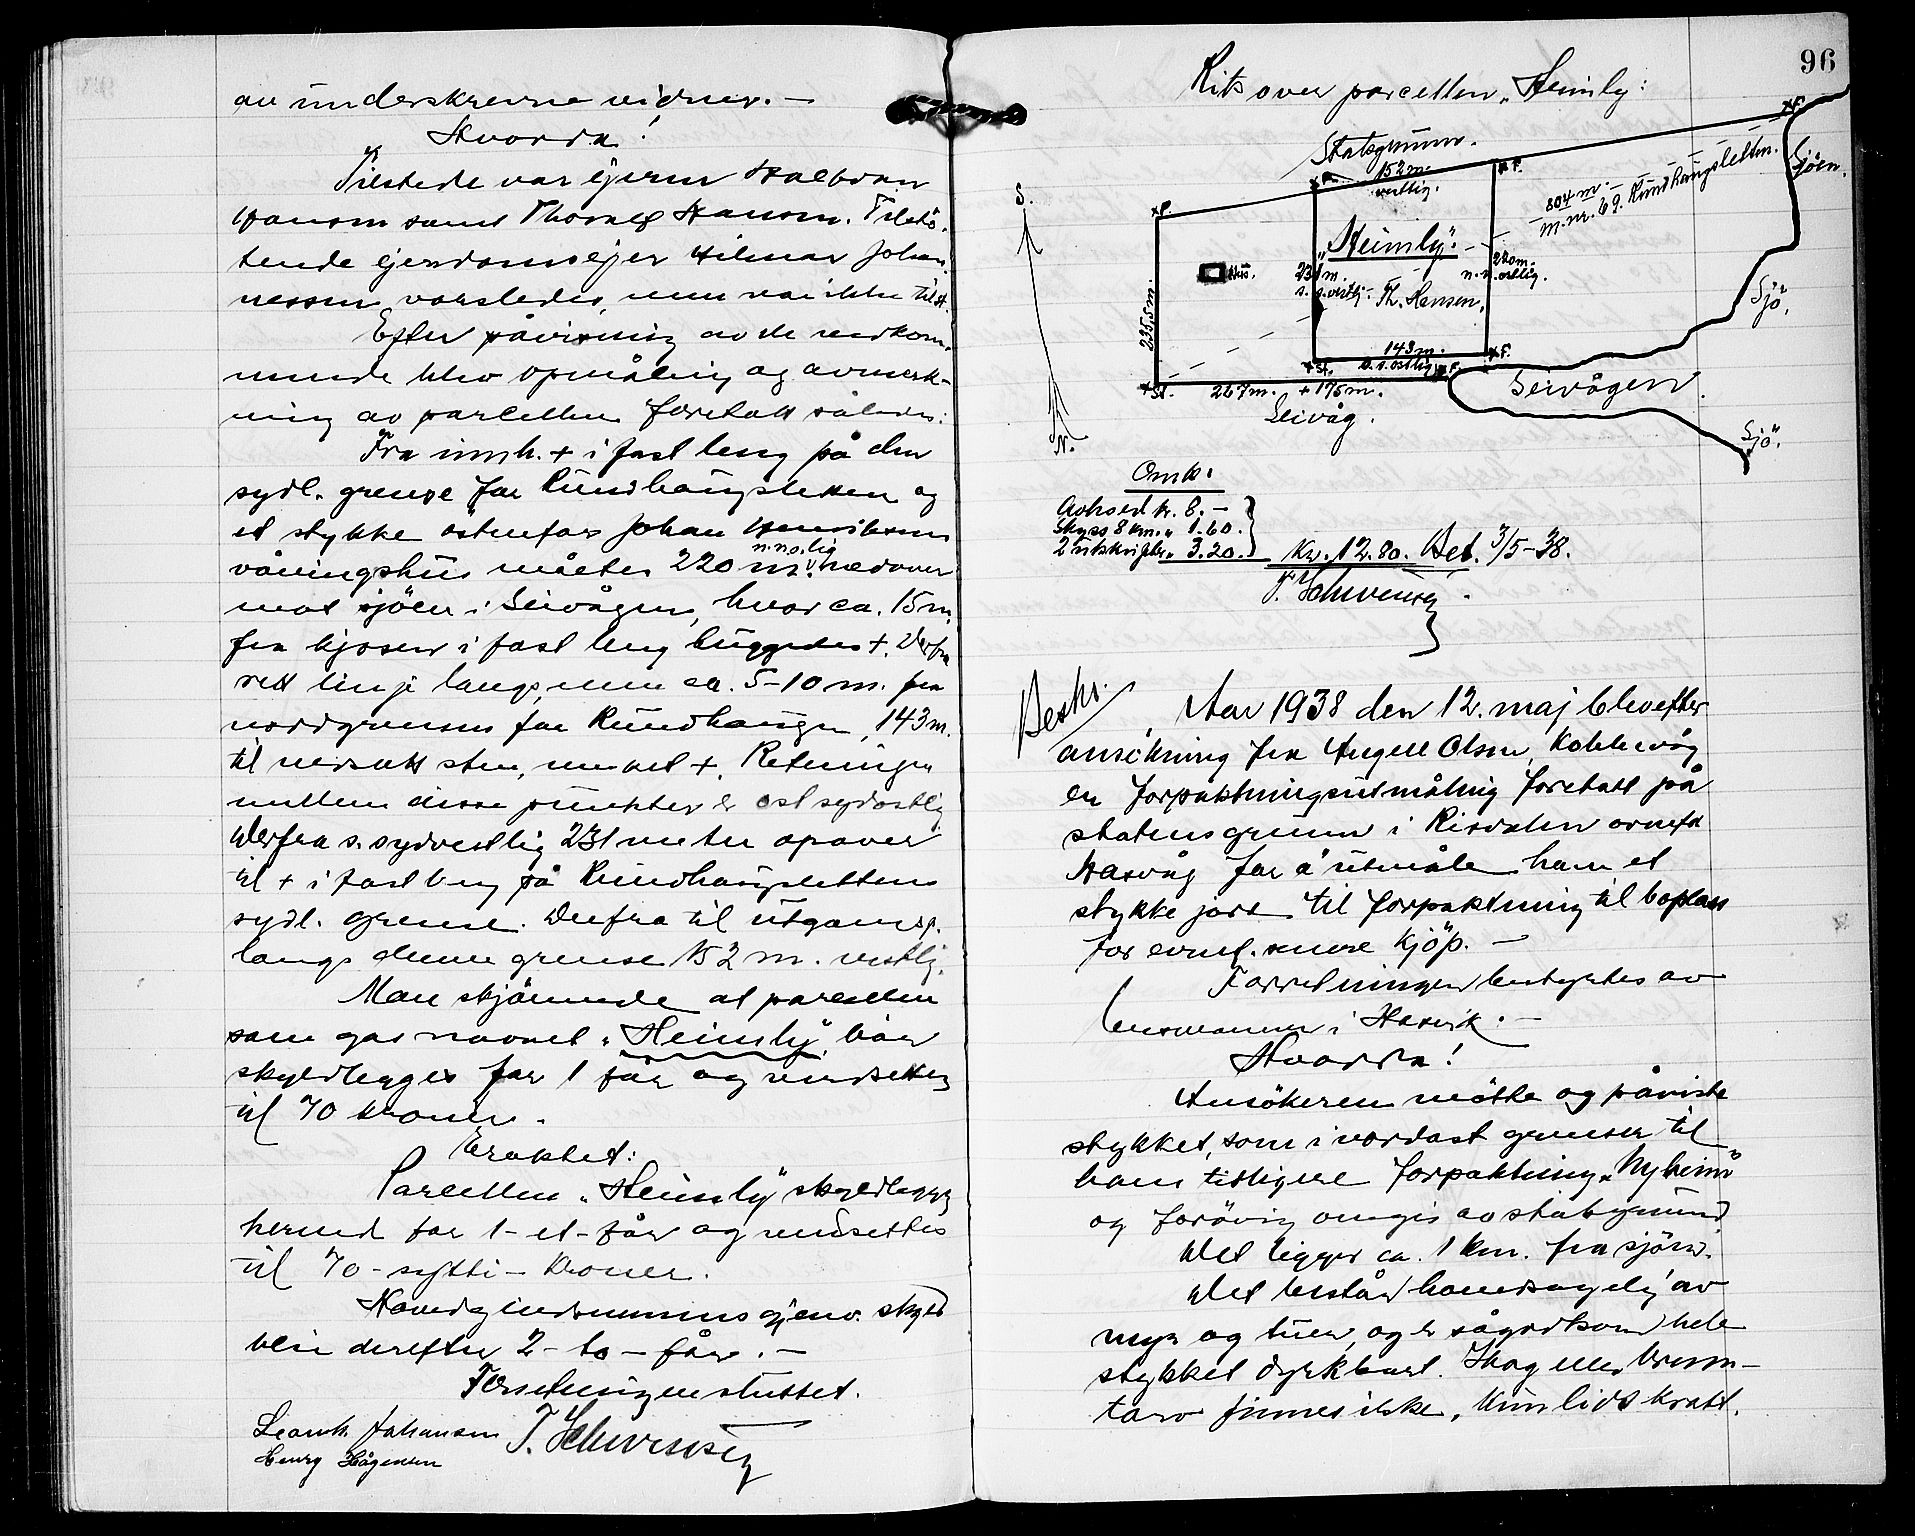 av underskrevne vidner. –
Hvorda!
Tilstede var ejeren Halvdan
Hansen samt Thoralf Hansen. Tilstö-
tende ejendomsejer Hilmar Johan-
nessen varsledes, men var ikke tilst.
Efter påvisning av de vedkom-
mende blev opmåling og avmerk-
ning av parcellen foretatt således:
Fra innh. + i fast berg på den
sydl. grense for Rundhaugsletten og
et stykke östenfor Johan Henriksens
n.n.o.lig
våningshus måltes 220 m. nedover
mot sjöen i Seivågen, hvor ca. 15 m.
fra kjosen i fast berg huggedes +. Derfra
rett linje langs, men ca. 5-10 m. fra
nordgrensen for Rundhaugen, 143 m.
til nersatt sten, merket +. Retningen
mellem disse punkter er ost sydostlig
Derfra s. sydvestlig 231 meter opover
til + i fast berg på Rundhaugslettens
sydl. grense. Derfra til utgangsp.
langs denne grense 152 m. vestlig.
Man skjönnede at parcellen
som gas navnet "Heimly" bör
skyldlegges for 1 får og verdsettes
til 70 kroner.
Eraktet:
Parcellen "Heimly" skyldlegges
herved for 1 - et - får og verdsettes
til 70 - sytti - kroner.
Hovedejendommens gjenv. skyld
blir derefter 2 - to - får. –
Forretningen sluttet.
Leonh. Johansen T. Schwensen
Henry Hågensen
96
Rits over parcellen "Heimly":
Statsgrunn.
152 m.
vestlig.
+F.
Sjöen.
804 m.
M.nr. 69. Rundhaugsletten.
S.
"Heimly".
Hus.
231 m.
s.s.vestlig.
220 m.
n.n.ostlig.
Th. Hansen.
Sjö.
235,5 m.
143 m.
o.s.ostlig
+F.
+St.
+St.
267 m. + 175 m.
Seivåg.
Seivågen.
Sjö.
N.
Omk:
Avholed kr. 8. –
Skyss 8 km. " 1.60.
2 utskrifter " 3.20.
Kr. 12.80. Bet. 3/5-38.
T. Schwensen
Beskr.
Aar 1938 den 12. maj blev efter
ansökning fra Angell Olsen, Kobbevåg
en forpaktningsutmåling foretatt på
statens grunn i Risdalen ovenfor
Hasvåg for å utmåle ham et
stykke jord til forpaktning til boplass
for event. senere kjöp. –
Forretningen bestyrtes av
lensmannen i Hasvik. –
Hvorda!
Ansökeren mötte og påviste
stykket, som i nordost grenser til
hans tidligere forpaktning "Nyheim"
og forövrig omgis av statsgrunn
Det ligger ca. 1 km. fra sjöen.
Det består hovedsagelig av
myr og tuer, og er sågodtsom hele
stykket dyrkbart. Skog eller brenn-
torv finnes ikke, kun lidt kratt.